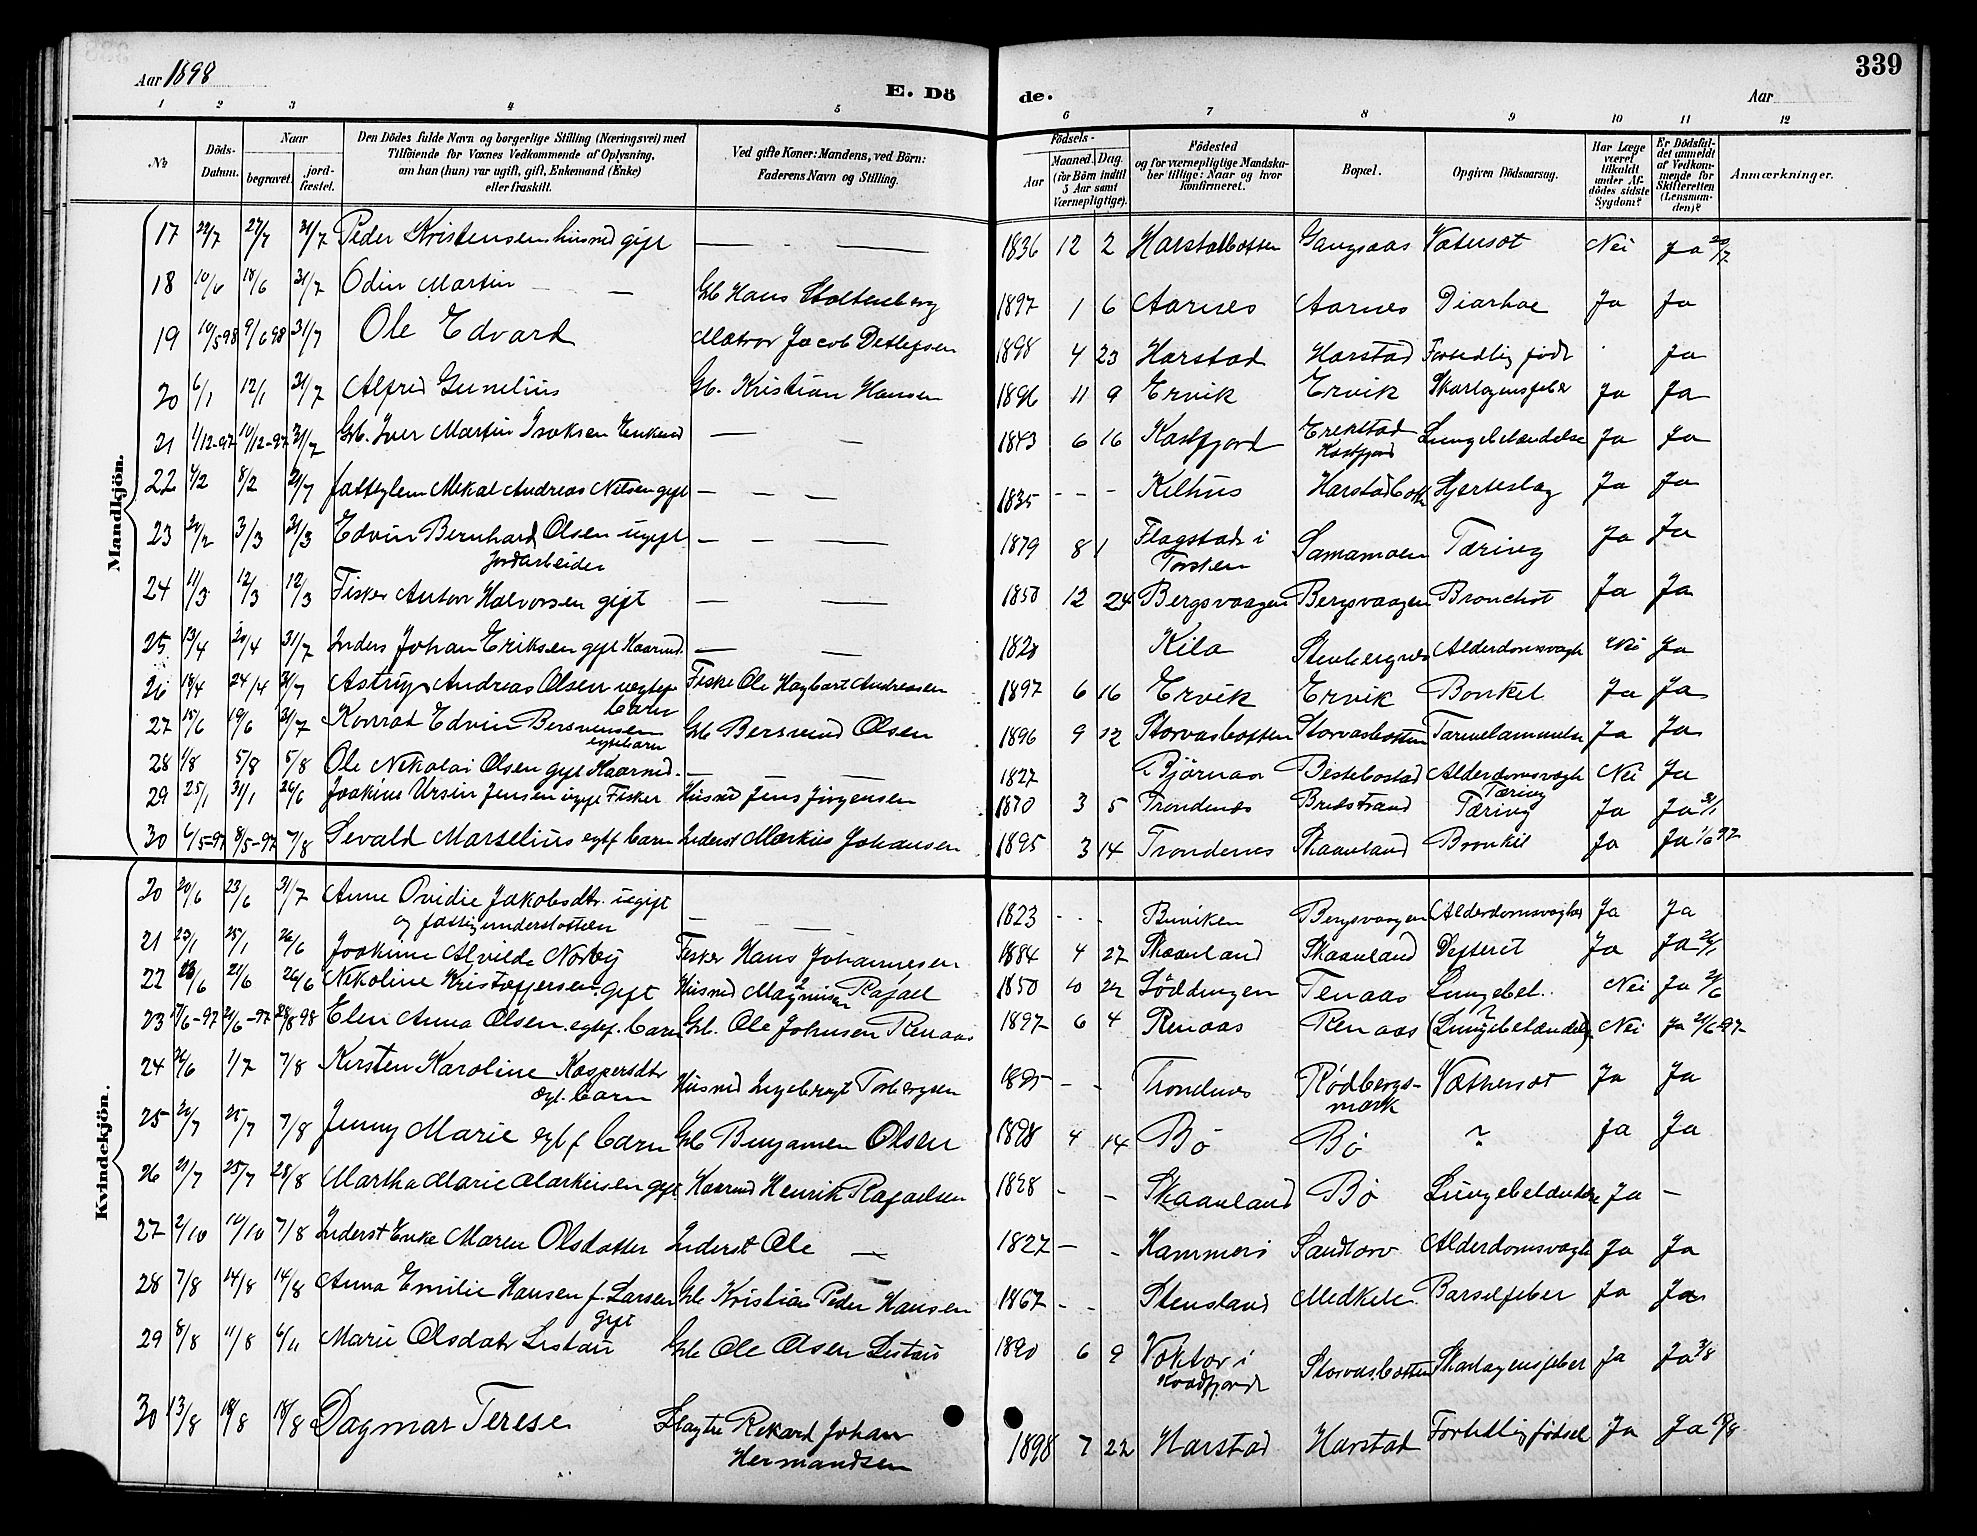 339
Aar 1898
E. Dö
de.
Aar
1 2 3 4 5 6 7 8 9 10 11 12
No
Döds-Datum.
Naar
begravet.
jord-fæstet.
Den Dödes fulde Navn og borgerlige Stilling (Næringsvei) med
Tilföiende for Voxnes Vedkommende af Oplysning,
om han (hun) var ugift, gift, Enkemand (Enke)
eller fraskilt.
Ved gifte Koner: Mandens, ved Börn:
Faderens Navn og Stilling.
Födsels-
Aar
Maaned. Dag.
(for Börn indtil
5 Aar samt
Værnepligtige).
Födested
og for værnepligtige Mandska-
ber tillige: Naar og hvor
konfirmeret.
Bopæl.
Opgiven Dödsaarsag.
Har Læge
været
tilkaldt
under Af-
dödes sidste
Sygdom?
Er Dödsfal-
det anmeldt
af Vedkom-
mende for
Skifteretten
(Lensman-
den)?
Anmærkninger.
Mandkjön.
17 22/7 27/7 31/7 Peder Kristensen husmd gift — — 1836 12 2 Harstadbotten Gangsaas Vatersot Nei Ja 20/7
18 10/6 18/6 31/7 Odin Martin — Gb Hans Stoltenberg 1897 1 6 Aarnes Aarnes Diarhoe Ja Ja
19 10/5 98 9/6 98 31/7 Ole Edvard Matros Jacob Detlefsen 1898 4 23 Harstad Harstad Fortidlig födt Ja
20 6/1 12/1 31/7 Alfred Gunelius Gb. Kristian Hansen 1896 11 9 Ervik Ervik Skarlagensfeber Ja Ja
21 1/12-97 10/12-97 31/7 Gb. Iver Martin Isaksen Enkemd — — 1843 6 16 Kasfjord Erikstad
Kasfjord Lungebetændelse Ja Ja
22 4/2 8/2 31/7 fattiglem Mikal Andreas Nilsen gift — — — 1835 - - - Kilhus Harstadbott Hjerteslag Ja Ja
23 24/2 3/3 31/3 Edvin Bernhard Olsen ugift
Jordarbeider — — — 1879 8 1 Flagstad i
Torsken Samamoen Tæring Ja Ja
24 11/3 12/3 12/3 Fisker Anton Halvorsen gift — — 1850 12 24 Bergsvaagen Bergsvaagen Bronchit Ja Ja
25 13/4 20/4 31/7 Inders Johan Eriksen gift Kaarmd. — — 1828 Kila Stenbergnes Alderdomsvagh Nei Ja
26 18/4 24/4 31/7 Astrup Andreas Olsen uegtef
barn Fisker Ole Hagbart Andreasen 1897 6 16 Ervik Ervik Bronkit Ja Ja
27 15/6 19/6 31/7 Konrad Edvin Bersvensen
egtebarn Gb Bersvend Olsen 1896 9 12 Storvasbotten Storvasbotten Tarmelammelse Ja Ja
28 1/8 5/8 5/8 Ole Nikolai Olsen gift Kaarmd. — — 1827 Björnaa Bestebostad Alderdomsvagh Nei Ja
29 25/1 31/1 26/6 Joakim Ursin Jensen ugift Fisker Husmd Jens Jörgensen 1870 3 5 Trondenes Bredstrand Tæring
Tæring Ja Ja 31/1
30 6/5-97 8/5-97 7/8 Sevald Marselius egtf barn Inderst Markus Johansen 1895 3 14 Trondenes Skaanland Bronkit Ja Ja 1/6 97
Kvindekjön.
20 20/6 23/6 31/7 Anne Ovidie Jakobsdtr. ugift
og fattigunderstottelse — — 1823 - - - Binviken Bergsvaagen Alderdomsvaghed Ja Ja
21 23/1 25/1 26/6 Joakime Alvilde Norby Fisker Hans Johannesen 1884 4 27 Skaanland Skaanland Difterit Ja Ja 26/1
22 23/6 21/6 26/6 Nikoline Kristoffersen gift Husmd Magnus Rafael 1850 10 22 Löddingen Tenaas Lungebet. Nei Ja 21/6
23 17/6-97 21/6-97 28/8 98 Elen Anna Olsen egtef. barn Gb. Ole Johnsen Renaas 1897 6 4 Renaas Renaas (Lungebetændelse) Nei Ja 21/6 97
24 26/6 1/7 7/8 Kirsten Karoline Kaspersdtr
egt. barn Husmd Ingebrigt Torbergsen 1895 - - Trondenes Rödbergs-
mark Vathersot Ja Ja
25 20/7 25/7 7/8 Jenny Marie egtf barn Gb Benjamin Olsen 1898 4 14 Bö Bö ? Ja Ja
26 21/7 25/7 28/8 Martha Marie Markusen gift Kaarmd Henrik Rafaelsen 1828 - - Skaanland Bö Lungebetændelse Ja —
27 2/10 10/10 7/8 Inderst Enke Maren Olsdatter Inderst Ole — 1827 — - Hammeri Sandtorv Alderdomsvagh Ja Ja
28 7/8 14/8 14/8 Anna Emilie Hansen f. Larsen
gift Gb Kristian Peder Hansen 1867 - - Stensland Medkile Barselfeber Ja Ja
29 8/8 11/8 6/11 Marie Olsdatr Listau Gb Ole Olsen Listau 1890 6 9 Voktor i
Kvadfjord Storvasbotten Skarlagensfeber Ja Ja 3/8
30 13/8 18/8 18/8 Dagmar Terese Slagter Rikard Johan
Hermandsen 1898 7 22 Harstad Harstad Fortidlig födsel Ja Ja 15/8